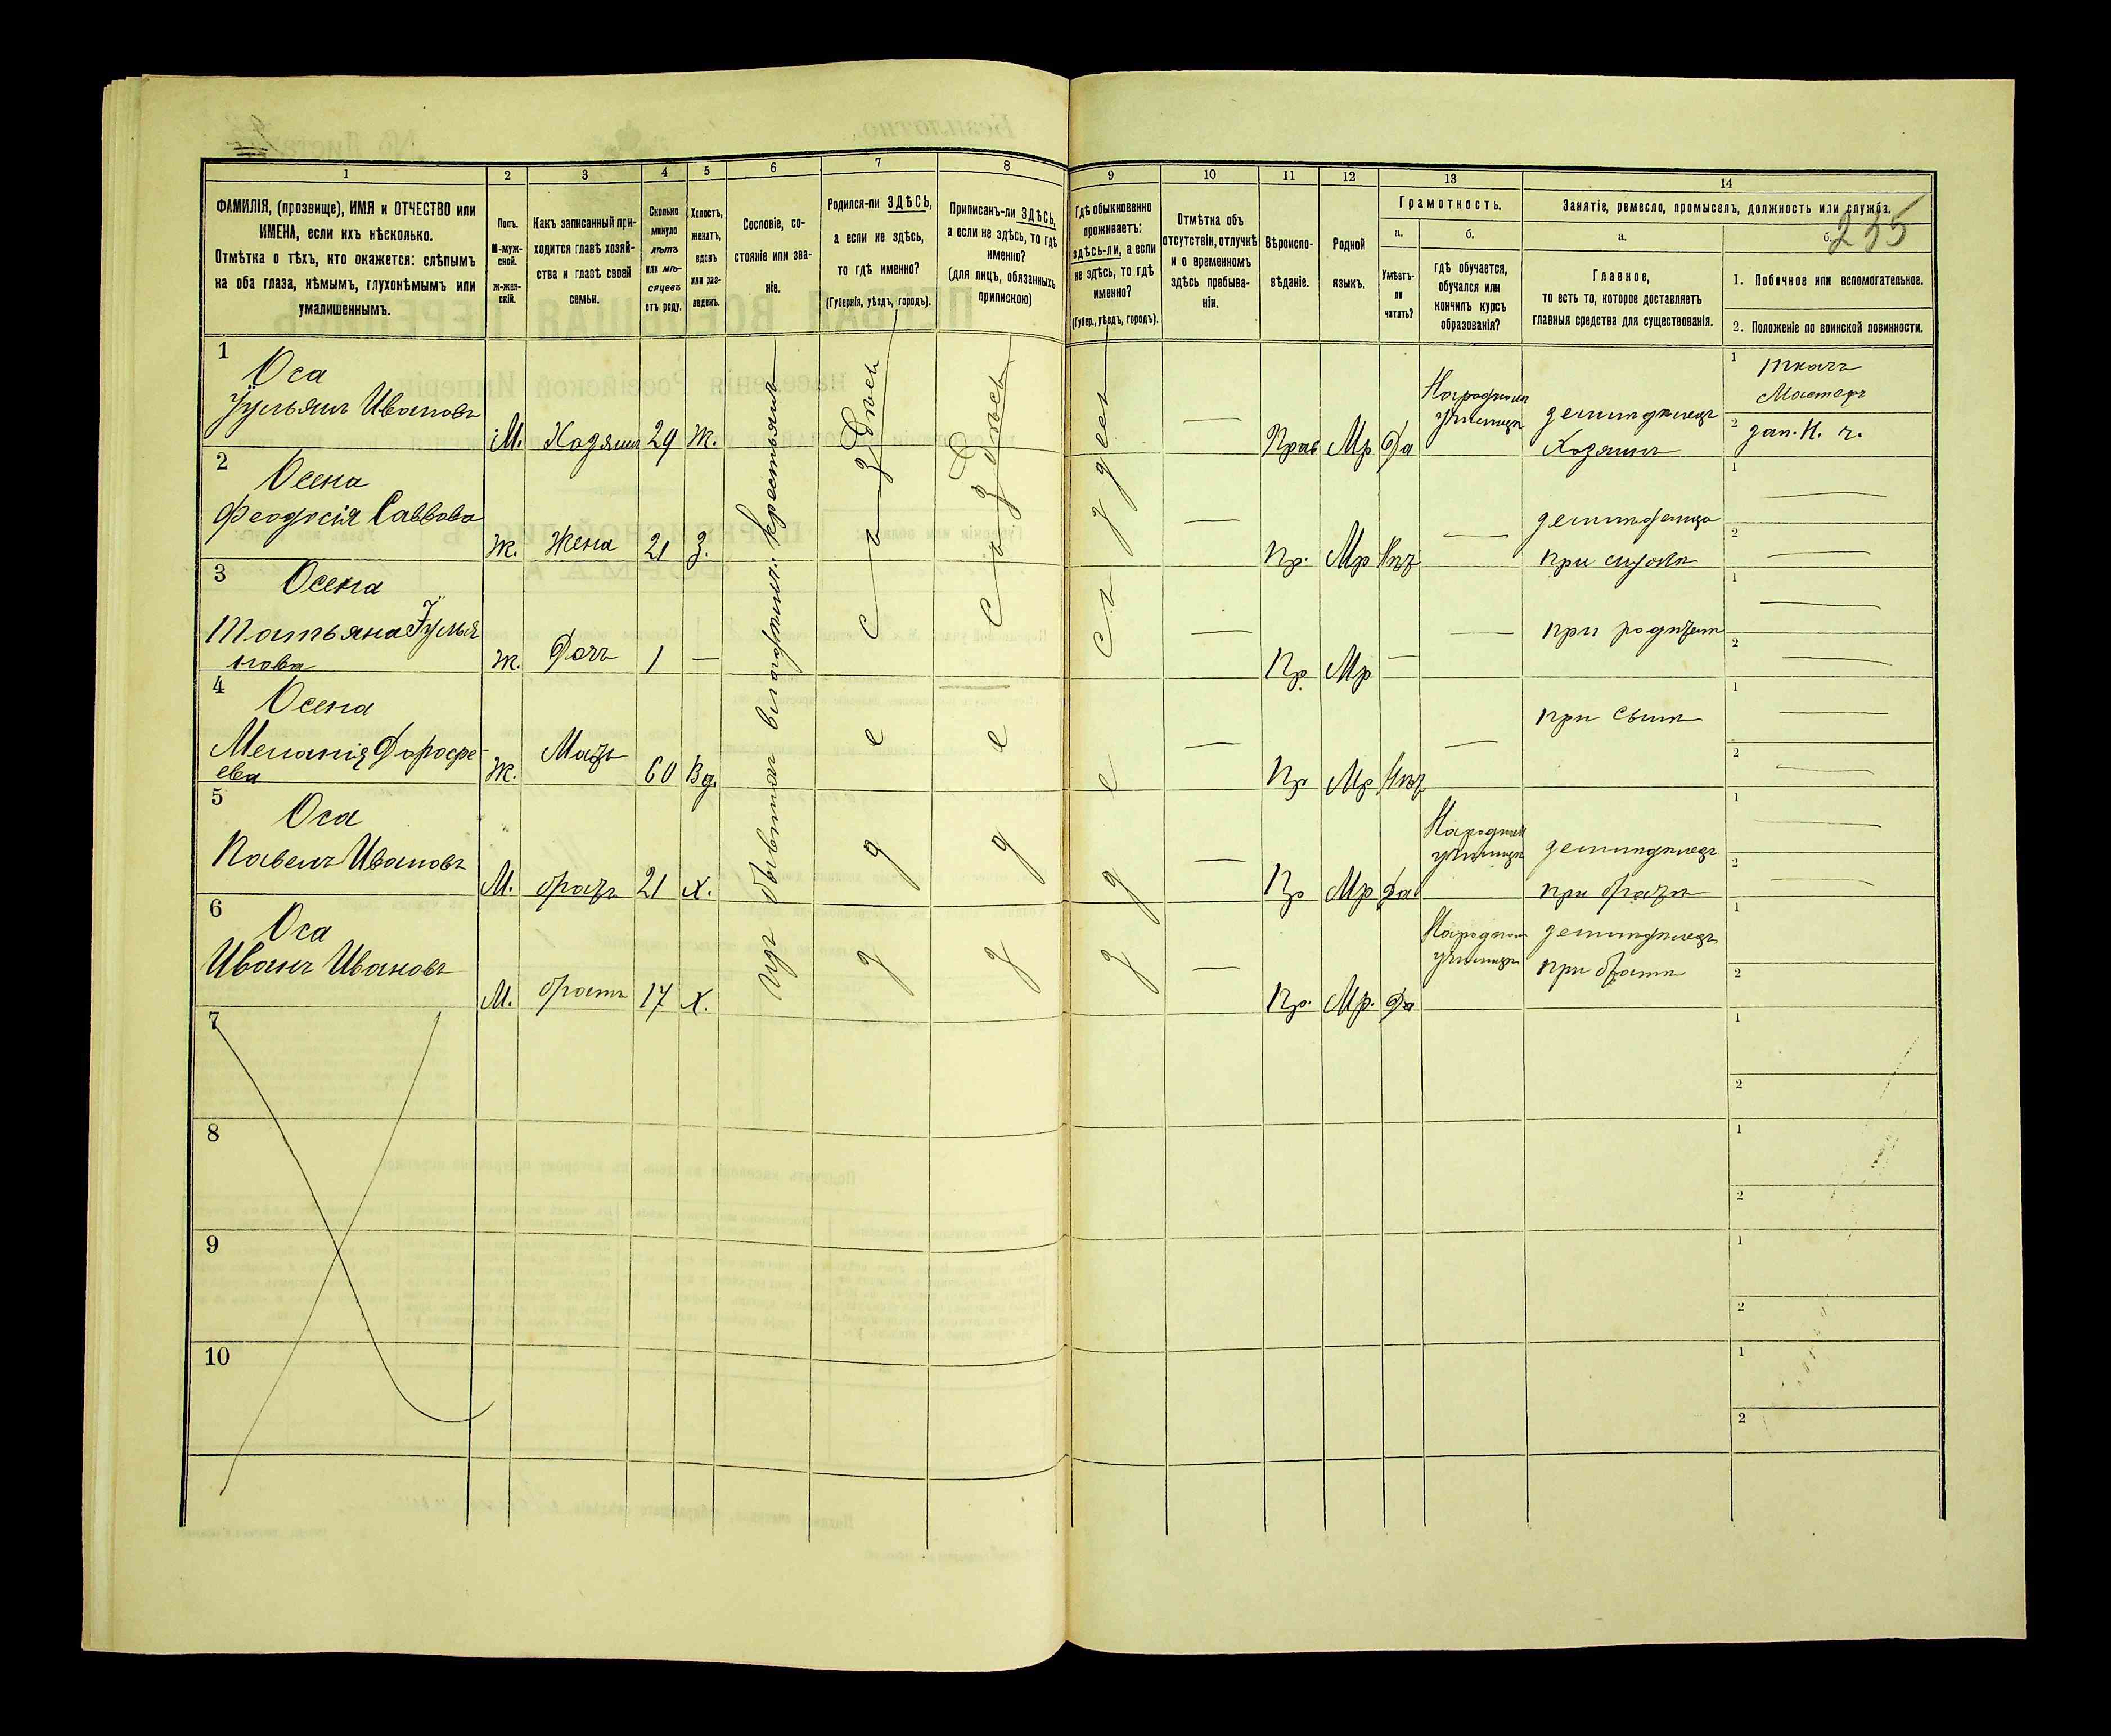 235
1
2
3
4
5
6
7
8
9
10
11
12
13
14
ФАМИЛІЯ, (прозвище), ИМЯ и ОТЧЕСТВО или
ИМЕНА, если ихъ нѣсколько.
Отмѣтка о тѣхъ, кто окажется: слѣпымъ
на оба глаза, нѣмымъ, глухонѣмымъ или
умалишеннымъ.
Полъ.
М-муж-
ской.
Ж-жен-
скій.
Какъ записанный при-
ходится главѣ хозяй-
ства и главѣ своей
семьи.
Сколько
минуло
лѣтъ
или мѣ-
сяцевъ
отъ роду.
Холостъ,
женатъ,
вдовъ
или раз-
веденъ.
Сословіе, со-
стояніе или зва-
ніе.
Родился-ли ЗДѢСЬ,
а если не здѣсь,
то гдѣ именно?
(Губернія, уѣздъ, городъ).
Приписанъ-ли ЗДѢСЬ,
а если не здѣсь, то гдѣ
именно?
(для лицъ, обязанныхъ
припискою)
Гдѣ обыкновенно
проживаетъ:
здѣсь-ли, а если
не здѣсь, то гдѣ
именно?
(Губер., уѣздъ, городъ).
Отмѣтка объ
отсутствіи, отлучкѣ
и о временномъ
здѣсь пребыва-
ніи.
Вѣроиспо-
вѣданіе.
Родной
языкъ.
Грамотность.
а.
б.
Умѣетъ-
ли
читать?
гдѣ обучается,
обучался или
кончилъ курсъ
образованія?
Занятіе, ремесло, промыселъ, должность или служба.
а.
б.
Главное,
то есть то, которое доставляетъ
главныя средства для существованія.
1. Побочное или вспомогательное.
2. Положеніе по воинской повинности.
1
Оса
Іульянъ Ивановъ
М.
Хозяинъ
29
Ж.
Прав
Мр
Да
Народномъ
училищѣ
земледѣлецъ
Хозяинъ
1
ткачъ
Мастеръ
2
зап. н. ч.
2
Осена
Феодосія Саввова
Ж.
Жена
21
З.
Пр.
Мр
Нѣт
при
1
2
3
Осена
Татьяна Іулья
нова
Ж.
Дочь
1
Пр.
Мр
при родител
1
2
4
Осена
Меланія Дорофе-
ева
Ж.
Мать
60
Вд.
Пр
Мр
Нѣт
при сынѣ
1
2
5
Оса
Павелъ Ивановъ
М.
братъ
21
Х.
Пр
Мр
Да
Народном
училищѣ
земледѣлецъ
при братѣ
1
2
6
Оса
Иванъ Ивановъ
М.
братъ
17
Х.
Пр.
Мр.
Да
Народном
училищѣ
земледѣлецъ
при братѣ
1
2
Изъ бывших крестьянъ
здѣсь
здѣсь
7
1
2
8
1
2
9
1
2
10
1
2